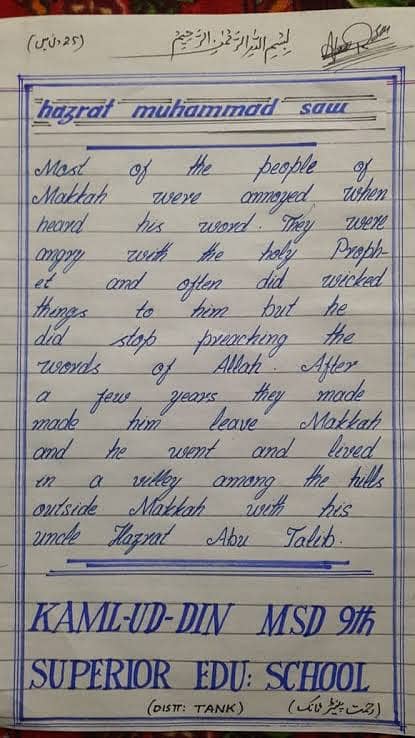 (25 دن میں) بسم الله الرحمن الرحيم
hazrat muhammad saw
Most of the people of
Makkah were annoyed when
heard his word. They were
angry with the holy Proph-
et and often did wicked
things to him but he
did stop preaching the
words of Allah. After
a few years they made
made him leave Makkah
and he went and lived
in a villey among the hills
outside Makkah with his
uncle Hazrat Abu Talib.
KAML-UD-DIN MSD 9th
SUPERIOR EDU: SCHOOL
(DISTT: TANK) (رحمت پینٹر ٹانک)